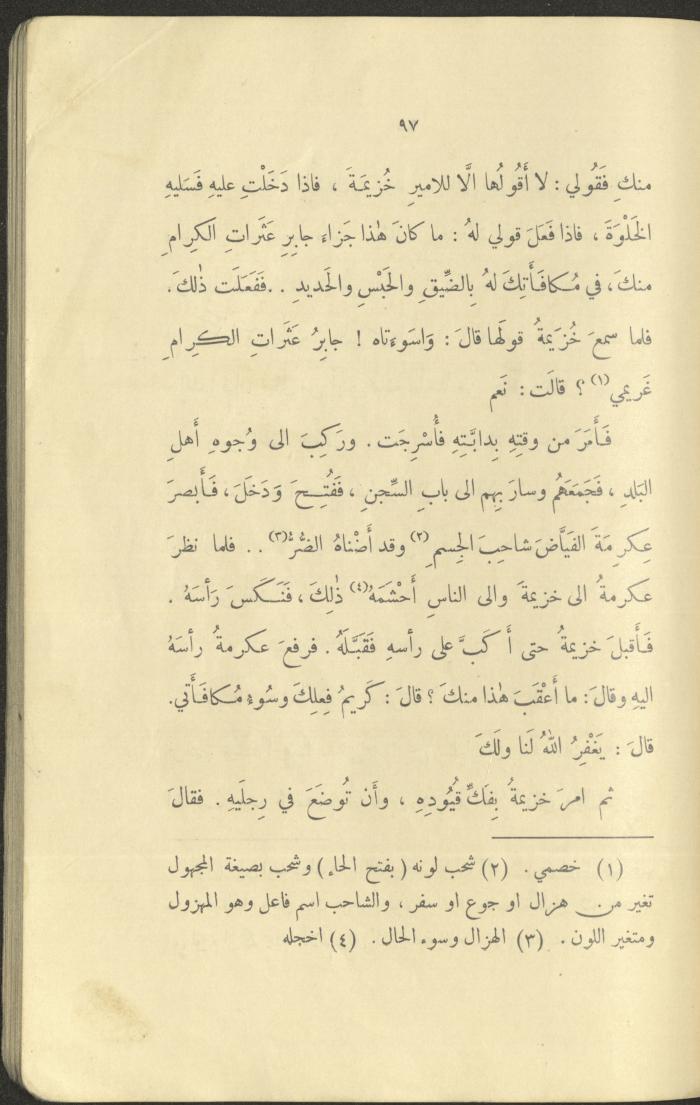 ٩٧
منكِ فَقُولي : لا أَقُولُها الَّا للاميرِ خُزيمَةَ ، فاذا دَخَلْتِ عليهِ فَسَليهِ
الخَلْوَةَ ، فاذا فَعَلَ قولي لهُ : ما كانَ هٰذا جَزاءَ جابِرِ عَثَراتِ الكرامِ
منكَ، في مُكافَأَتِكَ لهُ بِالضِّيقِ والحَبْسِ والحَديدِ . . فَفَعَلَت ذٰلكَ .
فلما سمعَ خُزَيمةُ قولَها قالَ : وَاسَوءَتاه ! جابِرُ عَثَراتِ الكرامِ
غَريمي (١) ؟ قالَت : نَعم
فَأَمَرَ من وقتِهِ بِدابَّتِهِ فأُسْرِجَت . ورَكِبَ الى وُجوهِ أَهلِ
البَلدِ ، فَجَمَعَهُم وسارَ بِهِم الى بابِ السِّجنِ ، فَفُتِحَ وَدَخَلَ ، فَأَبصرَ
عِكرِمَةَ الفَيَّاضَ شاحِبَ الجِسمِ (٢) وقد أَضْناهُ الضُّرُّ (٣) . . فلما نظرَ
عكرمةُ الى خزيمةَ والى الناسِ أَحْشَمَهُ (٤) ذٰلِكَ ، فَنَكَسَ رَأسَهُ .
فَأَقبلَ خزيمةُ حتى أَكَبَّ على رأسهِ فَقَبَّلَهُ . فرفعَ عكرمةُ رأسَهُ
اليهِ وقالَ : ما أَعْقَبَ هٰذا منكَ ؟ قالَ : كَريمُ فِعلِكَ وسُوءُ مُكافَأَتي .
قالَ : يَغْفِرُ اللهُ لَنا ولَكَ
ثم امرَ خزيمةُ بِفَكِّ قُيُودِهِ ، وأَن تُوضَعَ في رِجلَيهِ . فقالَ
(١) خصمي . (٢) شحب لونه ( بفتح الحاء ) وشحب بصيغة المجهول
تغير من هزال او جوع او سفر ، والشاحب اسم فاعل وهو المهزول
ومتغير اللون . (٣) الهزال وسوء الحال . (٤) اخجله